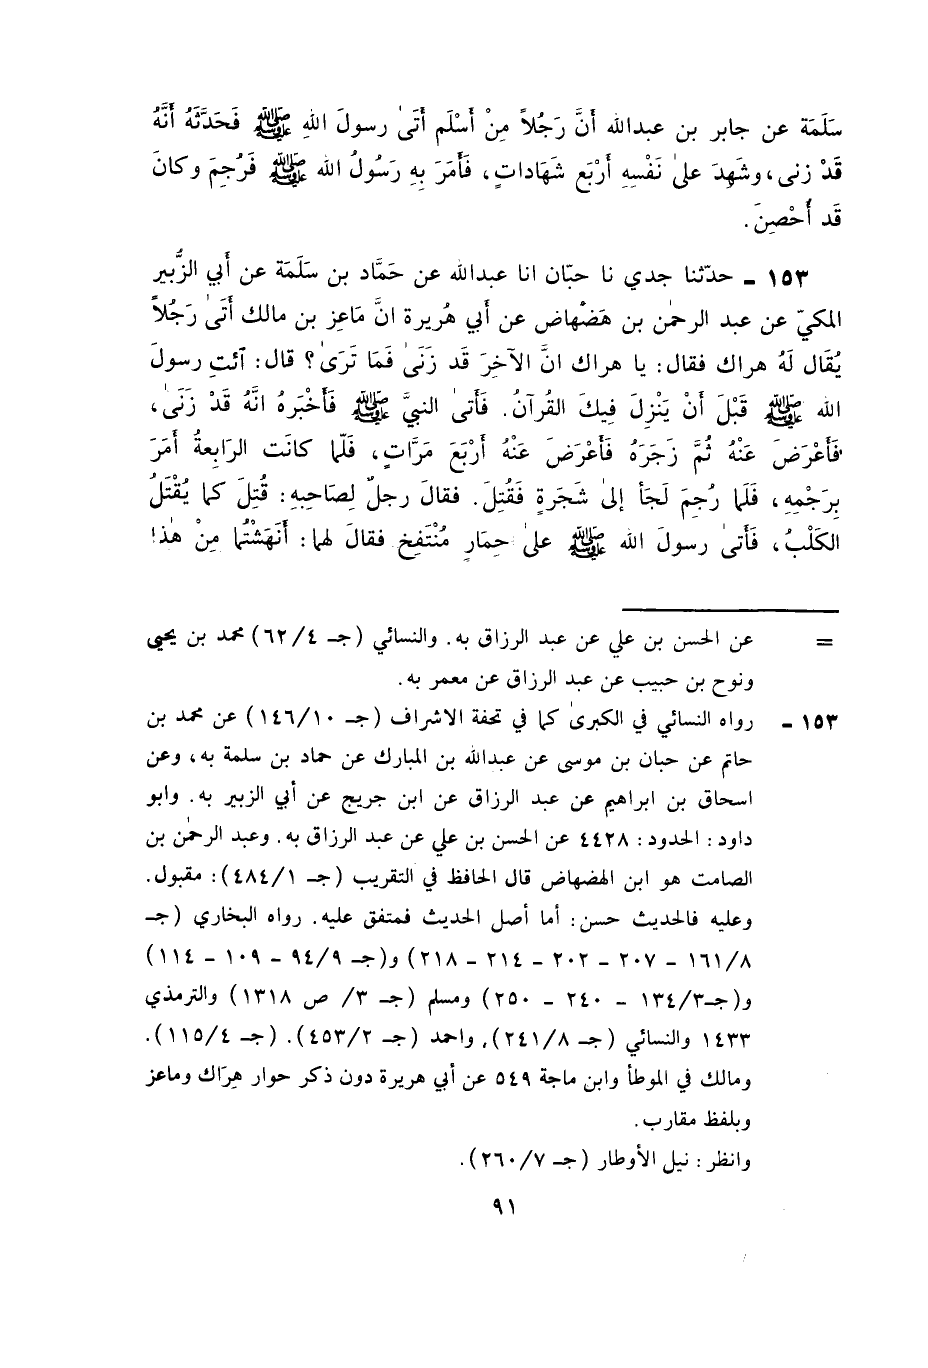 سَلَمَة عن جابر بن عبدالله أنَّ رَجُلاً مِنْ أَسْلَم أَتىٰ رسولَ اللهِ ﷺ فَحَدَّثَهُ أَنَّهُ
قَدْ زنى، وشَهِدَ علىٰ نَفْسِهِ أَرْبَع شَهَاداتٍ، فَأَمَرَ بِهِ رَسُولُ الله ﷺ فَرُجِمَ وكانَ
قَد أُحْصِنَ.
١٥٣ ـ حدّثنا جدي نا حبّان انا عبدالله عن حَمَّاد بن سَلَمَة عن أبي الزُّبير
المكيّ عن عبد الرحمٰن بن هَضْهاض عن أبي هُريرة انَّ مَاعِز بن مالك أَتَىٰ رَجُلاً
يُقَال لَهُ هراك فقال: يا هراك انَّ الآخِرَ قَد زَنَىٰ فَمَا تَرَىٰ؟ قال: آئتِ رسولَ
الله ﷺ قَبْلَ أنْ يَنْزِلَ فِيكَ القُرآنُ. فَأَتىٰ النبيَّ ﷺ فَأَخْبَرهُ انَّهُ قَدْ زَنَىٰ،
فَأَعْرَضَ عَنْهُ ثُمَّ زَجَرَهُ فَأَعْرَضَ عَنْهُ أَرْبَعَ مَرَّاتٍ، فَلّما كانَت الرَابِعةُ أَمَرَ
بِرَجْمِهِ، فَلَما رُجِمَ لَجَأَ إلىٰ شَجَرَةٍ فَقُتِلَ. فقالَ رجلٌ لِصَاحِبِهِ: قُتِلَ كما يُقْتَلُ
الكَلْبُ، فَأَتىٰ رسولَ الله ﷺ علىٰ حِمَارٍ مُنْتَفِخ فقالَ لهما: أَنَهَشْتُما مِنْ هٰذا!
= عن الحسن بن علي عن عبد الرزاق به. والنسائي (جـ ٤/٦٢) محمد بن يحيى
ونوح بن حبيب عن عبد الرزاق عن معمر به.
١٥٣ ـ رواه النسائي في الكبرىٰ كما في تحفة الاشراف (جـ ١٠/١٤٦) عن محمد بن
حاتم عن حبان بن موسى عن عبدالله بن المبارك عن حماد بن سلمة به، وعن
اسحاق بن ابراهيم عن عبد الرزاق عن ابن جريج عن أبي الزبير به. وابو
داود: الحدود: ٤٤٢٨ عن الحسن بن علي عن عبد الرزاق به. وعبد الرحمٰن بن
الصامت هو ابن الهضهاض قال الحافظ في التقريب (جـ ١/٤٨٤): مقبول.
وعليه فالحديث حسن: أما أصل الحديث فمتفق عليه. رواه البخاري (جـ
٨/١٦١ - ٢٠٧ - ٢٠٢ - ٢١٤ - ٢١٨) و(جـ ٩/٩٤ - ١٠٩ - ١١٤)
و(جـ٣/١٣٤ - ٢٤٠ - ٢٥٠) ومسلم (جـ ٣/ ص ١٣١٨) والترمذي
١٤٣٣ والنسائي (جـ ٨/٢٤١)، واحمد (جـ ٢/٤٥٣). (جـ ٤/١١٥).
ومالك في الموطأ وابن ماجة ٥٤٩ عن أبي هريرة دون ذكر حوار هِرَاك وماعز
وبلفظ مقارب.
وانظر: نيل الأوطار (جـ ٧/٢٦٠).
٩١